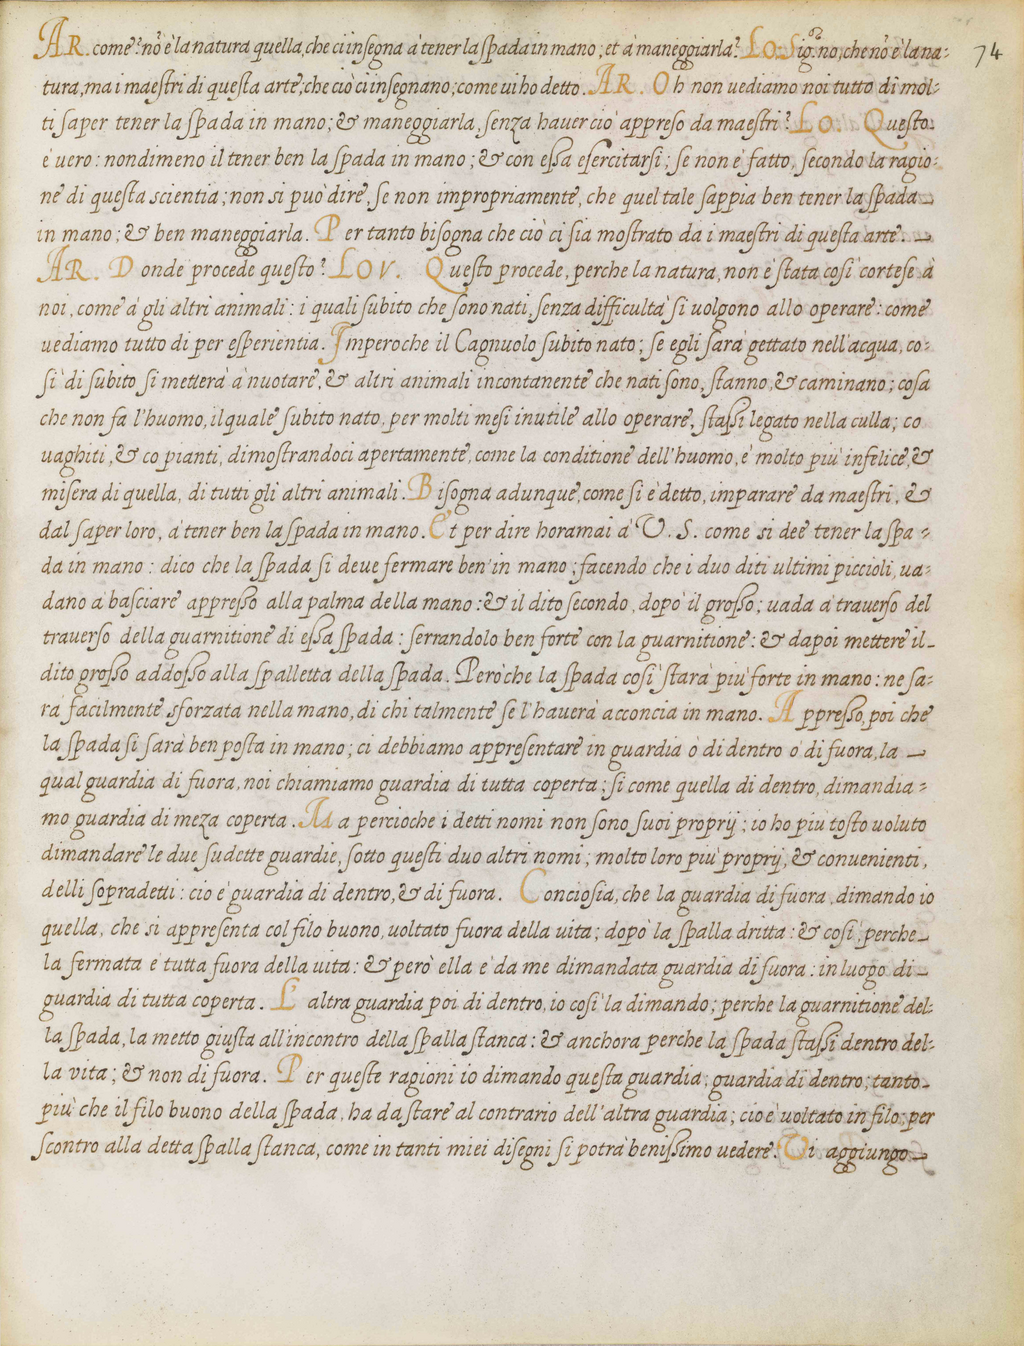 AR. come? nō è la natura quella, che ci insegna à tener la spada in mano; et à maneggiarla? LO. Sig.ʳ no, che nō è la na= 74
tura, ma i maestri di questa arte, che ciò ci insegnano; come vi ho detto. AR. Oh non uediamo noi tutto dì mol=
ti saper tener la spada in mano; & maneggiarla, senza hauer ciò appreso da maestri? LO. Questo
è uero: nondimeno il tener ben la spada in mano; & con essa esercitarsi; se non è fatto, secondo la ragio=
ne di questa scientia; non si può dire, se non impropriamente, che quel tale sappia ben tener la spada
in mano; & ben maneggiarla. Per tanto bisogna che ciò ci sia mostrato da i maestri di questa arte.
AR. Donde procede questo? LOV. Questo procede, perche la natura, non è stata così cortese à
noi, come à gli altri animali: i quali subito che sono nati, senza difficultà si uolgono allo operare: come
uediamo tutto dì per esperientia. Imperoche il Cagnuolo subito nato; se egli sarà gettato nell'acqua, co=
sì di subito si metterà à nuotare, & altri animali incontanente che nati sono, stanno, & caminano; cosa
che non fa l'huomo, il quale subito nato, per molti mesi inutile allo operare, stassi legato nella culla; co
uaghiti, & co pianti, dimostrandoci apertamente, come la conditione dell'huomo, è molto più infelice, &
misera di quella, di tutti gli altri animali. Bisogna adunque, come si è detto, imparare da maestri, &
dal saper loro, à tener ben la spada in mano. Et per dire horamai à V. S. come si dee tener la spa=
da in mano: dico che la spada si deve fermare ben' in mano; facendo che i duo diti ultimi piccioli, ua=
dano à basciare appresso alla palma della mano: & il dito secondo, dopò il grosso; uada à trauerso del
trauerso della guarnitione di essa spada: serrandolo ben forte con la guarnitione: & dapoi mettere il
dito grosso addosso alla spalletta della spada. Però che la spada così starà più forte in mano: ne sa=
rà facilmente sforzata nella mano, di chi talmente se l'hauerà acconcia in mano. Appresso, poi che
la spada si sarà ben posta in mano; ci debbiamo appresentare in guardia ò di dentro ò di fuora, la
qual guardia di fuora, noi chiamiamo guardia di tutta coperta; si come quella di dentro, dimandia=
mo guardia di meza coperta. Ma percioche i detti nomi non sono suoi proprij; io ho più tosto uoluto
dimandare le due sudette guardie, sotto questi duo altri nomi; molto loro più proprij, & conuenienti,
delli sopradetti: cio è guardia di dentro, & di fuora. Conciosia, che la guardia di fuora, dimando io
quella, che si appresenta col filo buono, uoltato fuora della uita; dopò la spalla dritta: & così; perche
la fermata è tutta fuora della uita: & però ella è da me dimandata guardia di fuora: in luogo di
guardia di tutta coperta. L'altra guardia poi di dentro, io così la dimando; perche la guarnitione del=
la spada, la metto giusta all'incontro della spalla stanca: & anchora perche la spada stassi dentro del=
la vita; & non di fuora. Per queste ragioni io dimando questa guardia, guardia di dentro; tanto
più che il filo buono della spada, ha da stare al contrario dell'altra guardia; cio è uoltato in filo; per
scontro alla detta spalla stanca, come in tanti miei disegni si potrà benissimo uedere. Vi aggiungo